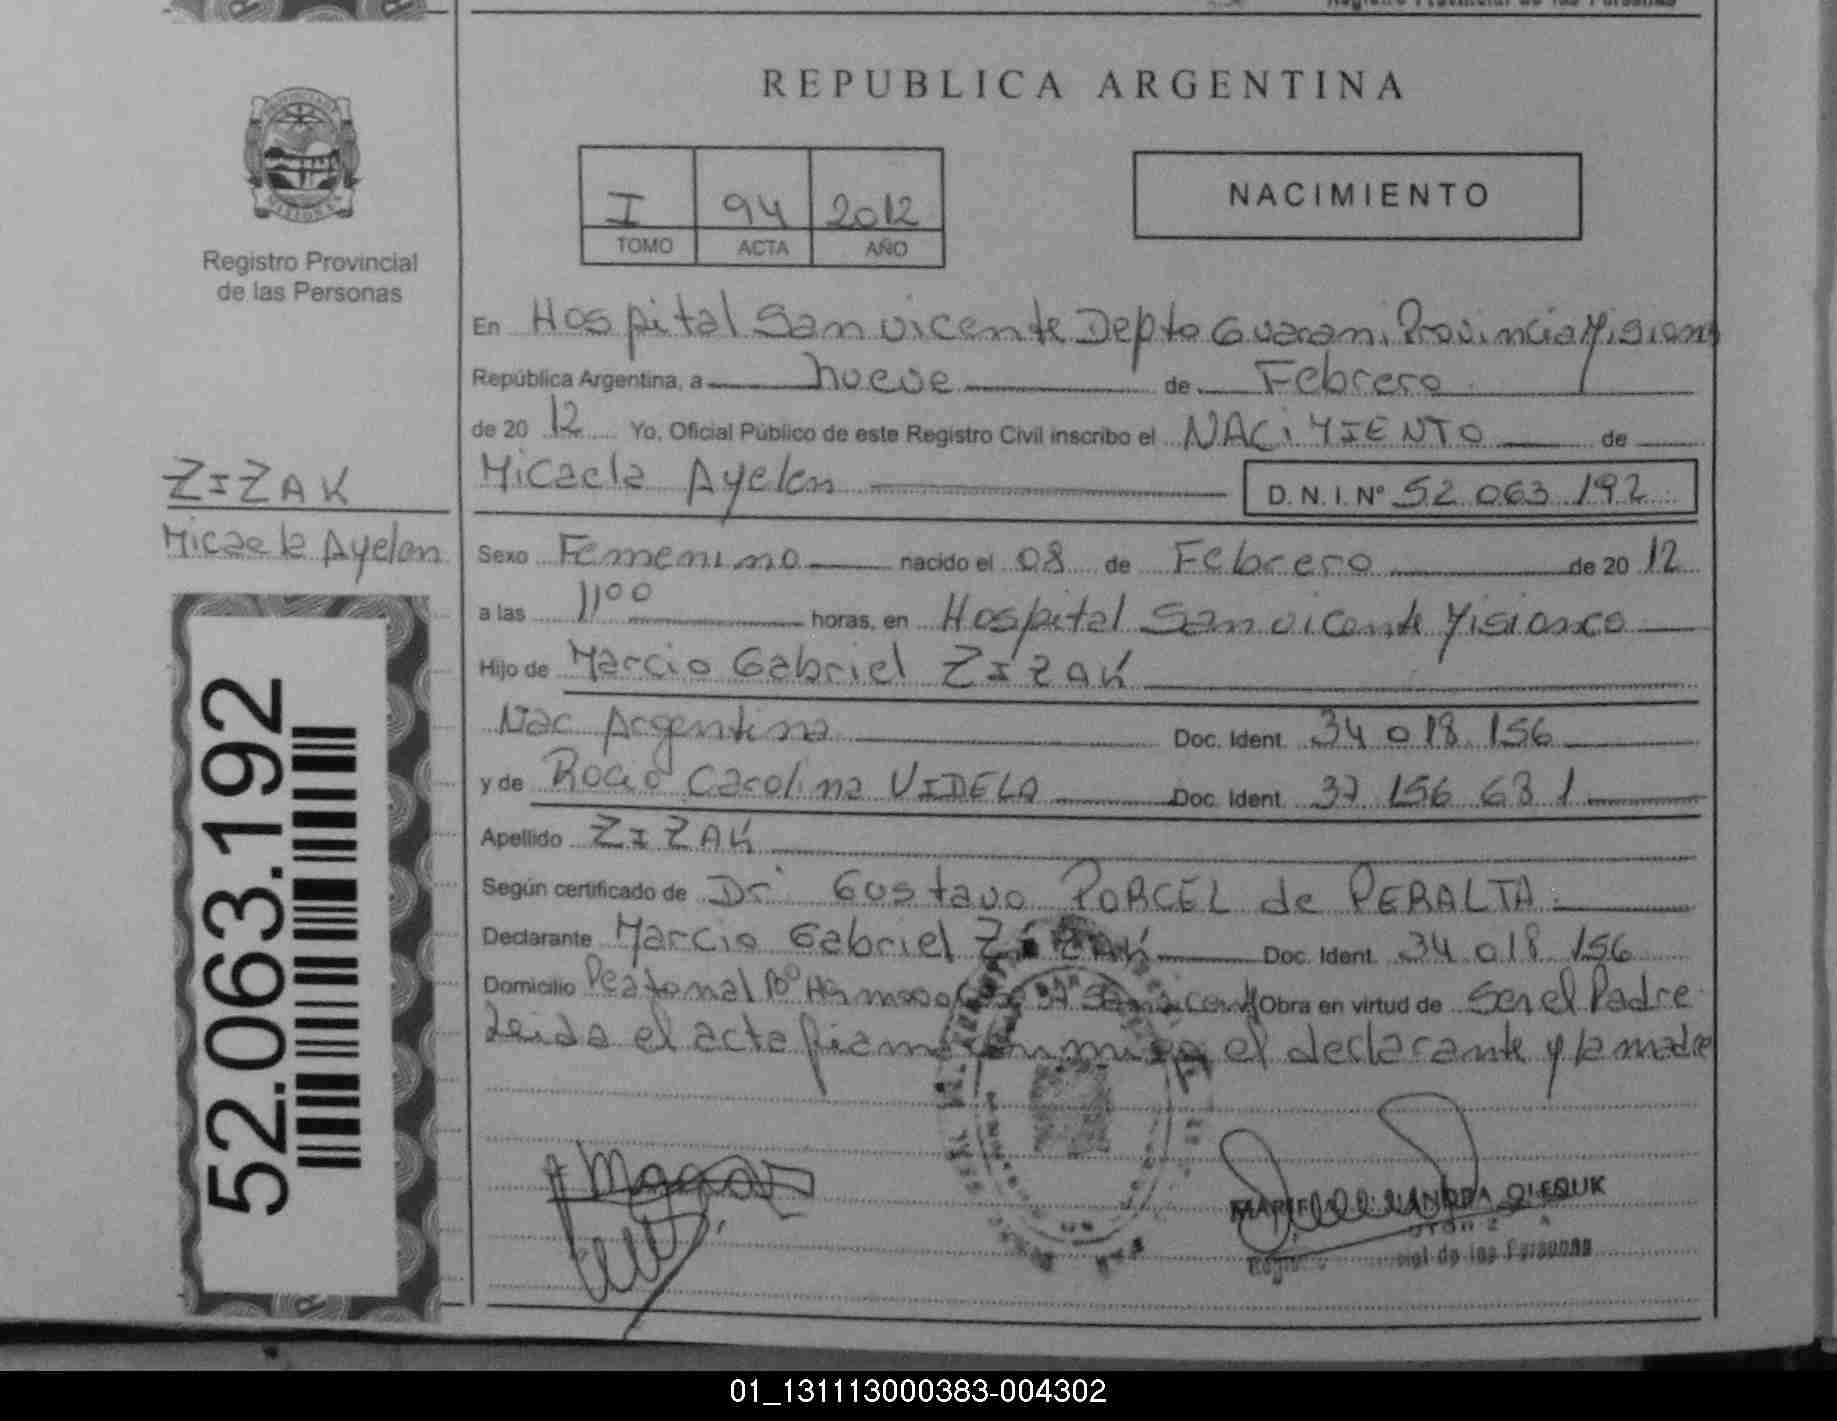 Registro Provincial de las Personas
REPUBLICA ARGENTINA
I 94 2012
TOMO ACTA AÑO
NACIMIENTO
Registro Provincial
de las Personas
En Hospital San vicente Depto Guarani Provincia Misiones
República Argentina, a nueve de Febrero
de 20 12 Yo, Oficial Público de este Registro Civil inscribo el NACIMIENTO de
Micaela Ayelen D.N.I. Nº 52.063.192
ZIZAK
Micaela Ayelen
Sexo Femenino nacido el 08 de Febrero de 20 12
a las 11:00 horas, en Hospital San vicente Misiones
Hijo de Marcio Gabriel ZIZAK
Nac Argentina Doc. Ident. 34 018 156
y de Rocio Carolina VIDELA Doc. Ident. 37 156 681
Apellido ZIZAK
Según certificado de Dr. Gustavo PORCEL de PERALTA
Declarante Marcio Gabriel ZIZAK Doc. Ident. 34 018 156
Domicilio Peatonal Bº Hermoso Obra en virtud de Ser el Padre
Leida el acta firman el declarante y la madre
52.063.192
cial de las Personas
01_131113000383-004302